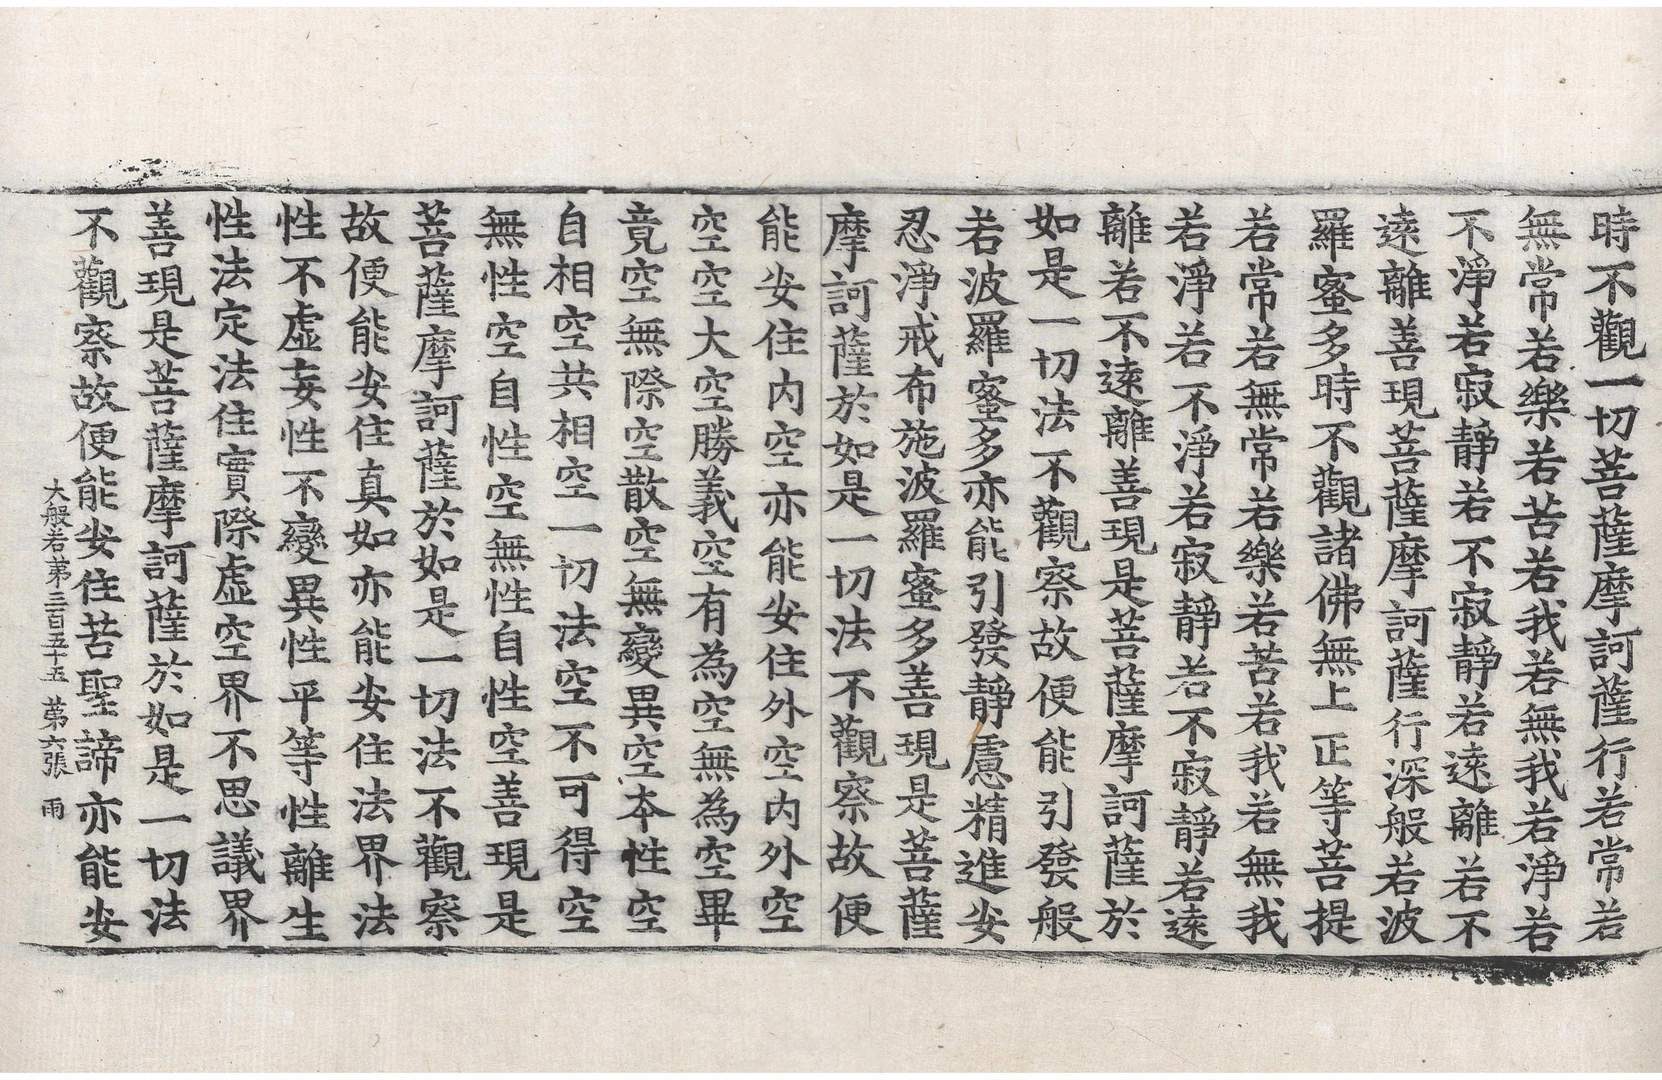 時不觀一切菩薩摩訶薩行若常若
無常若樂若苦若我若無我若淨若
不淨若寂靜若不寂靜若遠離若不
遠離善現菩薩摩訶薩行深般若波
羅蜜多時不觀諸佛無上正等菩提
若常若無常若樂若苦若我若無我
若淨若不淨若寂靜若不寂靜若遠
離若不遠離善現是菩薩摩訶薩於
如是一切法不觀察故便能引發般
若波羅蜜多亦能引發靜慮精進安
忍淨戒布施波羅蜜多善現是菩薩
摩訶薩於如是一切法不觀察故便
能安住内空亦能安住外空内外空
空空大空勝義空有為空無為空畢
竟空無際空散空無變異空本性空
自相空共相空一切法空不可得空
無性空自性空無性自性空善現是
菩薩摩訶薩於如是一切法不觀察
故便能安住真如亦能安住法界法
性不虛妄性不變異性平等性離生
性法定法住實際虛空界不思議界
善現是菩薩摩訶薩於如是一切法
不觀察故便能安住苦聖諦亦能安
大般若第三百五十五 第六張 雨